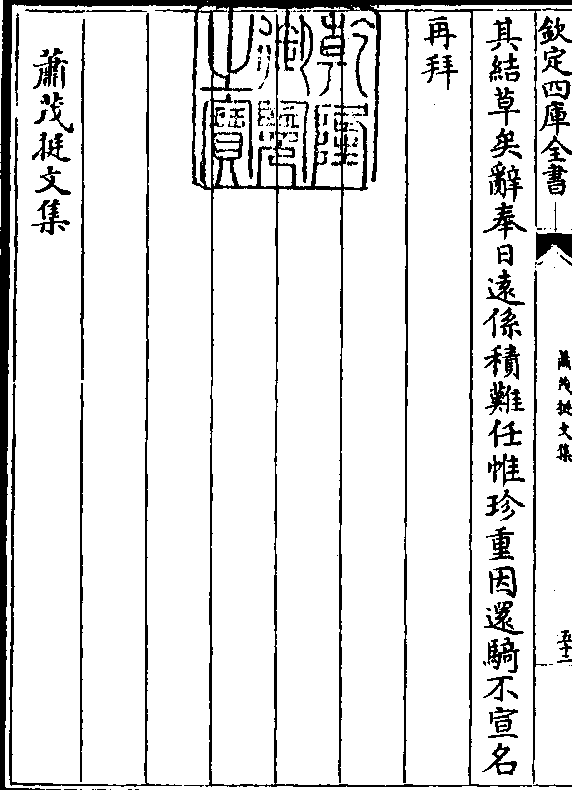 欽定四庫全書
蕭茂挺文集
五十二
其結草矣辭奉日遠係積難任惟珍重因還騎不宣名
再拜
乾隆御覽之寶
蕭茂挺文集